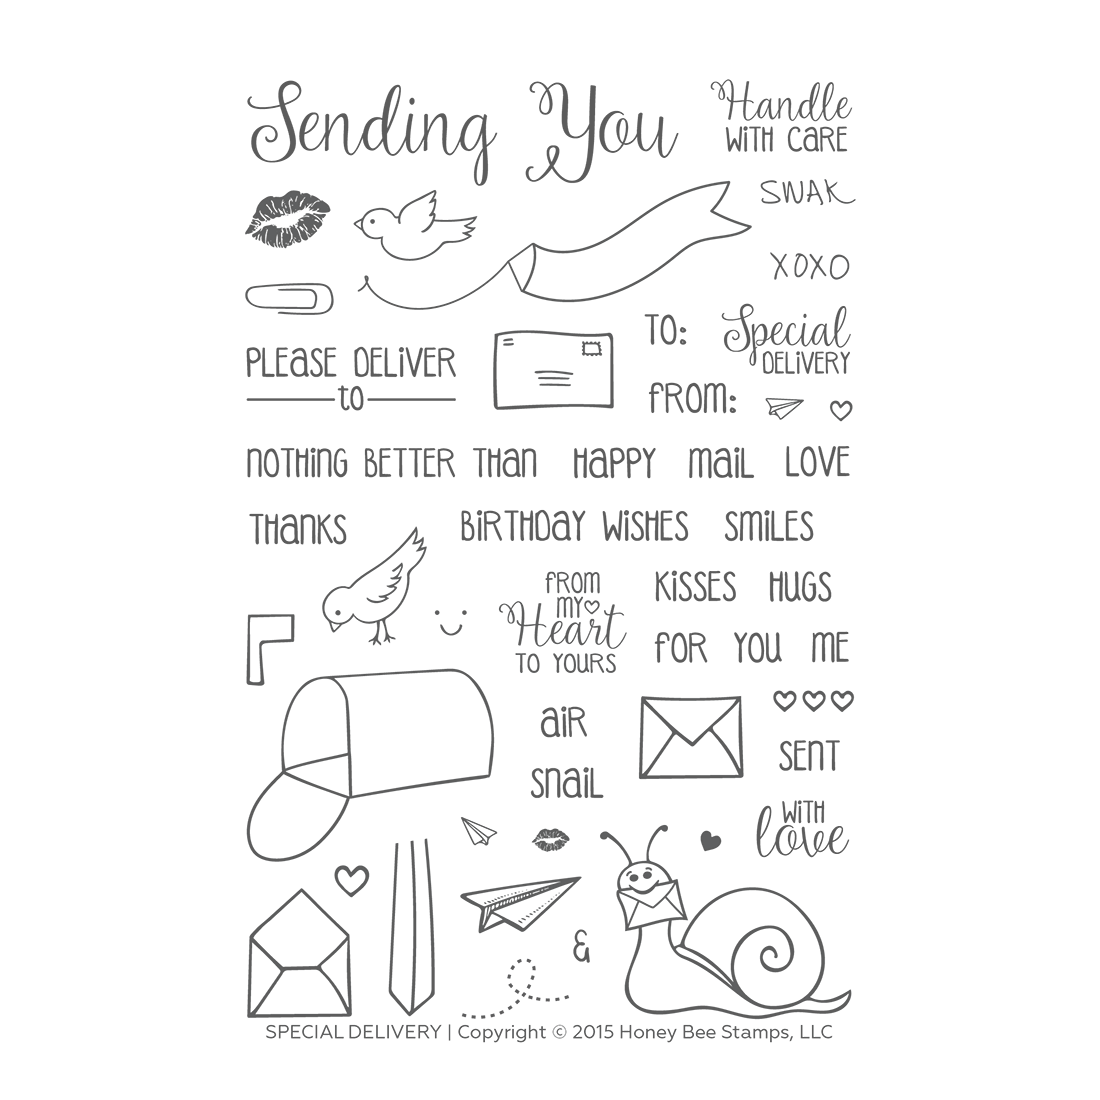 Sending You
Handle
WiTH CaRE
SWAK
XOXO
TO:
Special
DELiVERY
PLEaSE DELiVER
to
fROM:
NOTHiNG BETTER THaN HaPPY MaiL LOVE
THaNKS
BiRTHDaY WiSHES SMiLES
fROM
MY
Heart
TO YOURS
KiSSES HUGS
fOR YOU ME
aiR
SNaiL
SENT
WiTH
love
&
SPECIAL DELIVERY | Copyright © 2015 Honey Bee Stamps, LLC